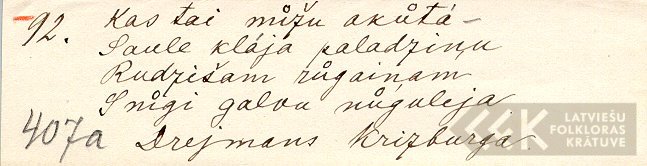 92. Kas tai můžu akůtá –
Saule klája paladziņu
Rudzišam růgaiņam
Snigi galvu nůguleja
407a Drejmans Krizburgá.
LATVIEŠU
FOLKLORAS
KRĀTUVE